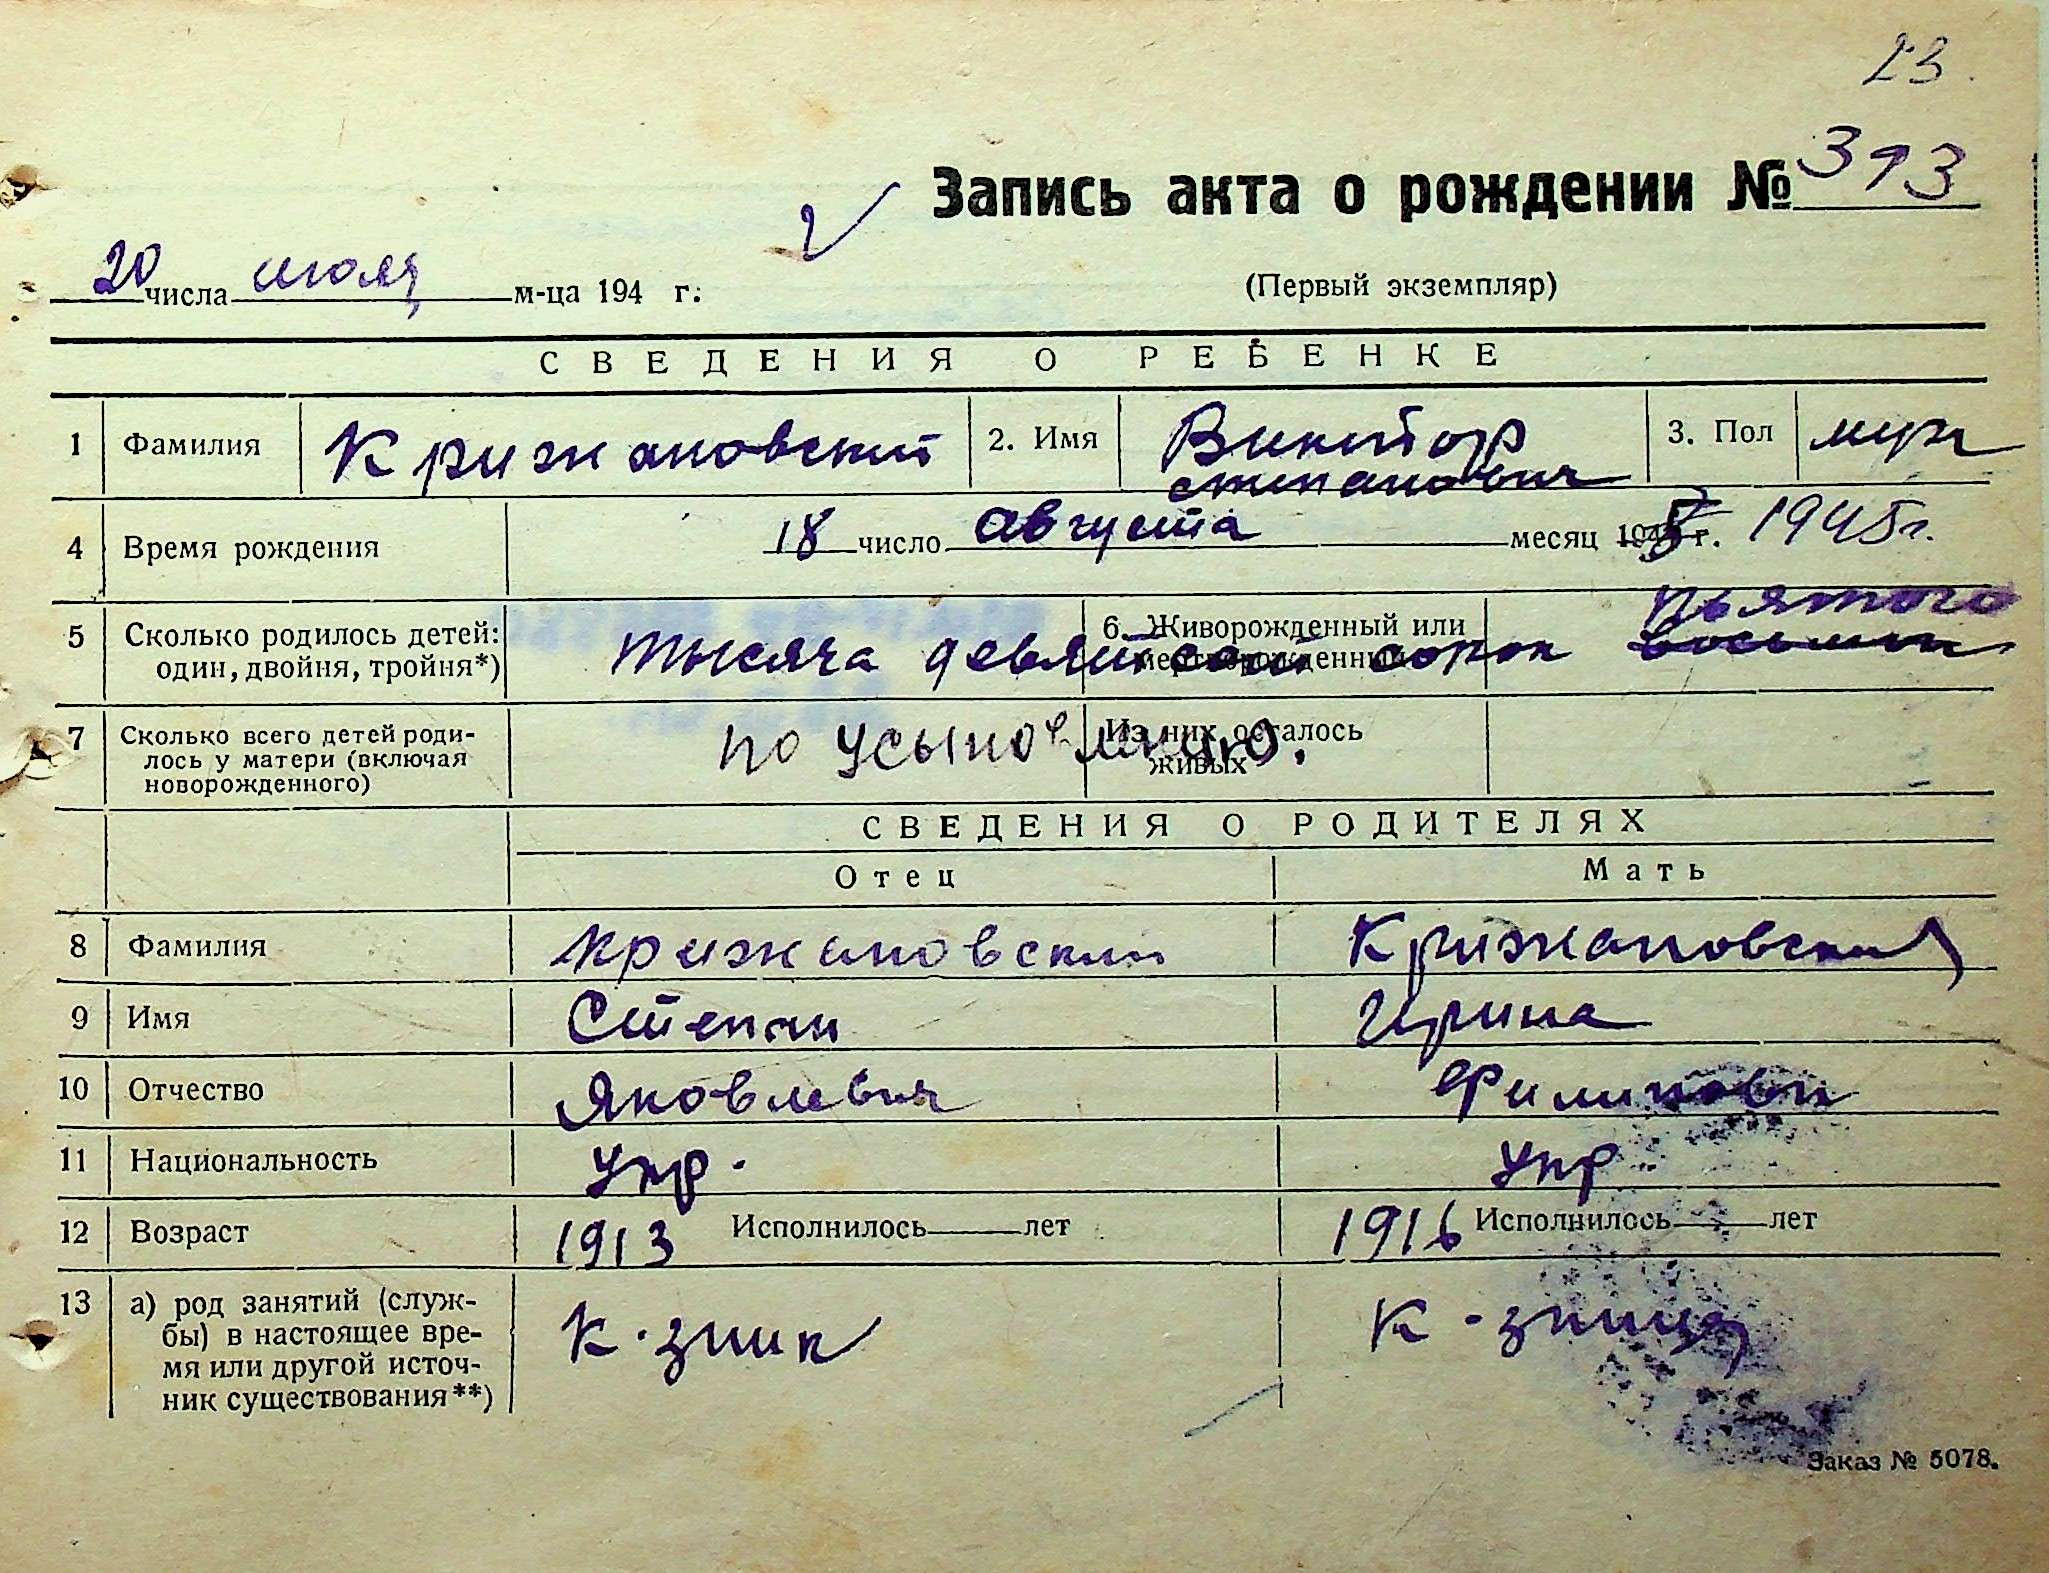 23.
Запись акта о рождении № 373
20 числа июля м-ца 194 г.
(Первый экземпляр)
СВЕДЕНИЯ О РЕБЕНКЕ
1 Фамилия Крижановский 2. Имя Виктор Степанович 3. Пол муж
4 Время рождения 18 число августа месяц 1945 г. 1945 г.
5 Сколько родилось детей: 6. Живорожденный или пьятого
один, двойня, тройня*) мертворожденный
тысяча девятсот сорок восьмои
7 Сколько всего детей роди- Из них осталось
лось у матери (включая живых
новорожденного)
по усыновлению.
СВЕДЕНИЯ О РОДИТЕЛЯХ
Отец Мать
8 Фамилия Крижановский Крижановская
9 Имя Степан Ирина
10 Отчество Яковлевич Филипови
11 Национальность Укр. Укр.
12 Возраст 1913 Исполнилось лет 1916 Исполнилось лет
13 а) род занятий (служ- К-зник К-зница
бы) в настоящее вре-
мя или другой источ-
ник существования**)
Заказ № 5078.